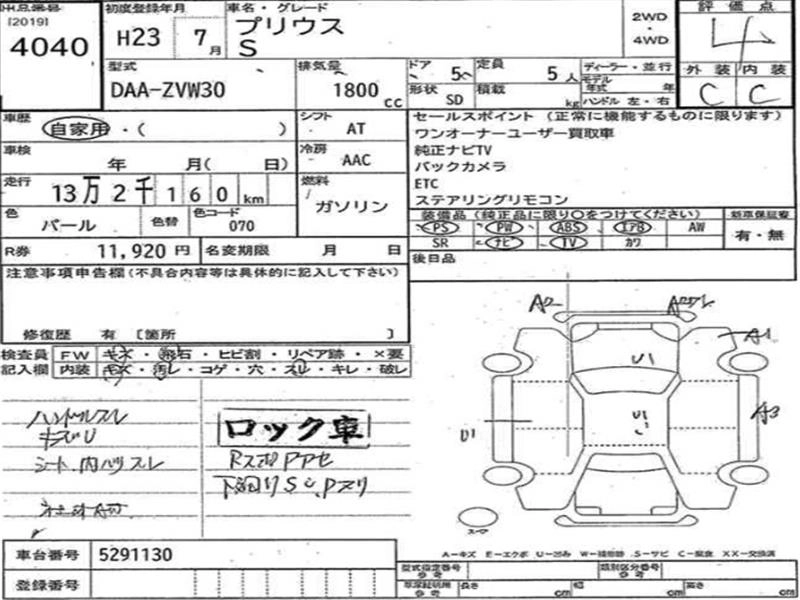 出品番号 初度登録年月 車名・グレード 評価点
[2019]
4040 H23 7月 プリウス S 2WD・4WD 4
型式 排気量 ドア 5 定員 5人 ディーラー・並行 外装 内装
DAA-ZVW30 1800 CC 形状 SD 積載 kg モデル年式 年 ハンドル 左・右 C C
車歴 自家用・( ) シフト AT セールスポイント (正常に機能するものに限ります)
ワンオーナーユーザー買取車
車検 年 月( 日) 冷房 AAC 純正ナビTV
バックカメラ
走行 13万2千160km 燃料 ガソリン ETC
ステアリングリモコン
色 パール 色替 色コード 070 装備品 (純正品に限り○をつけてください) 新車保証書
PS PW ABS エアB AW 有・無
SR ナビ TV カワ
R券 11,920円 名変期限 月 日 後日品
注意事項申告欄(不具合内容等は具体的に記入して下さい)
修復歴 有 [箇所 ]
検査員 FW キズ・飛石・ヒビ割・リペア跡・×要
記入欄 内装 キズ・汚レ・コゲ・穴・スレ・キレ・破レ
A2
A1
U1
A3
U1
ハンドルスレ
キズU
シート、内ハリスレ
ロック車
下廻りS
スペア
A-キズ E-エクボ U-凹み W-補修跡 S-サビ C-腐食 XX-交換済
車台番号 5291130
登録番号
型式指定番号 参考 類別区分番号 参考
長さ cm 幅 cm 高さ cm